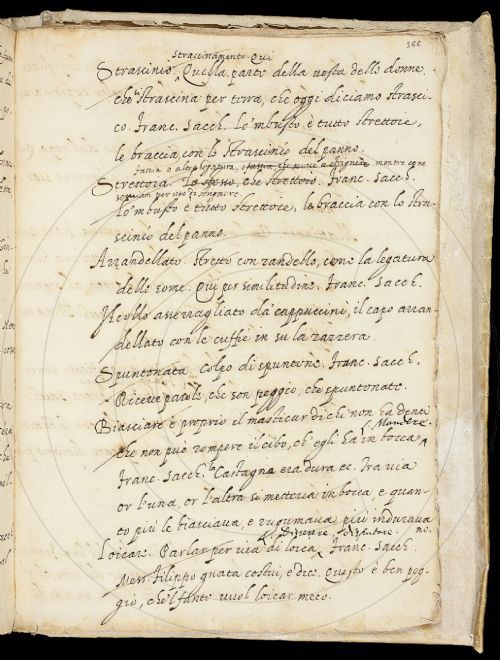 366
Strascinamento. Qui
Strascinio. Quella parte della vesta delle donne
che si strascina per terra, che oggi diciamo strasci-
co. Franc. Sacch. Lo 'mbusto è tutto strettoie,
le braccia con lo strascinio del panno.
fascia o altra legatura, mentre
Strettoia. Lo stesso, che strettoio. Franc. Sacch.
per uso di strignere
Lo 'mbusto è tutto strettoie, le braccia con lo stra-
scinio del panno.
Arrandellato. Stretto con randello, come la legatura
delle some. Qui per similitudine. Franc. Sacch.
Il collo avervagliato da' cappuccini, il capo arran-
dellato con le cuffie in su la zazzera.
Spuntonata. colpo di spuntone. Franc. Sacch.
Riceve parole, che son peggio, che spuntonate.
Biasciare è proprio il masticar di chi non ha denti
Mandere.
che non può rompere il cibo, ch'egli ha in bocca
Franc. Sacch. la Castagna era dura ec. Tra via
or l'una, or l'altra si metteva in bocca, e quan-
to più le biasciava, e rugumava più indurava
Disserere, disputare. no.
Loicare. Parlar per via di loica. Franc. Sacch.
Mess. Filippo guata costui, e dice. Questo è ben peg-
gio, che 'l fante vuol loicar meco.